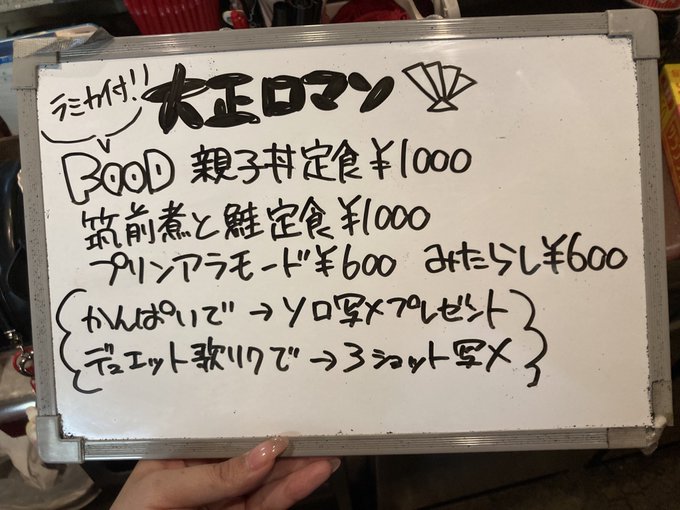 ラミカ付!!
大正ロマン
FOOD 親子丼定食¥1000
筑前煮と鮭定食¥1000
プリンアラモード¥600 みたらし¥600
かんぱいで→ソロ写メプレゼント
デュエット歌リクで→3ショット写メ